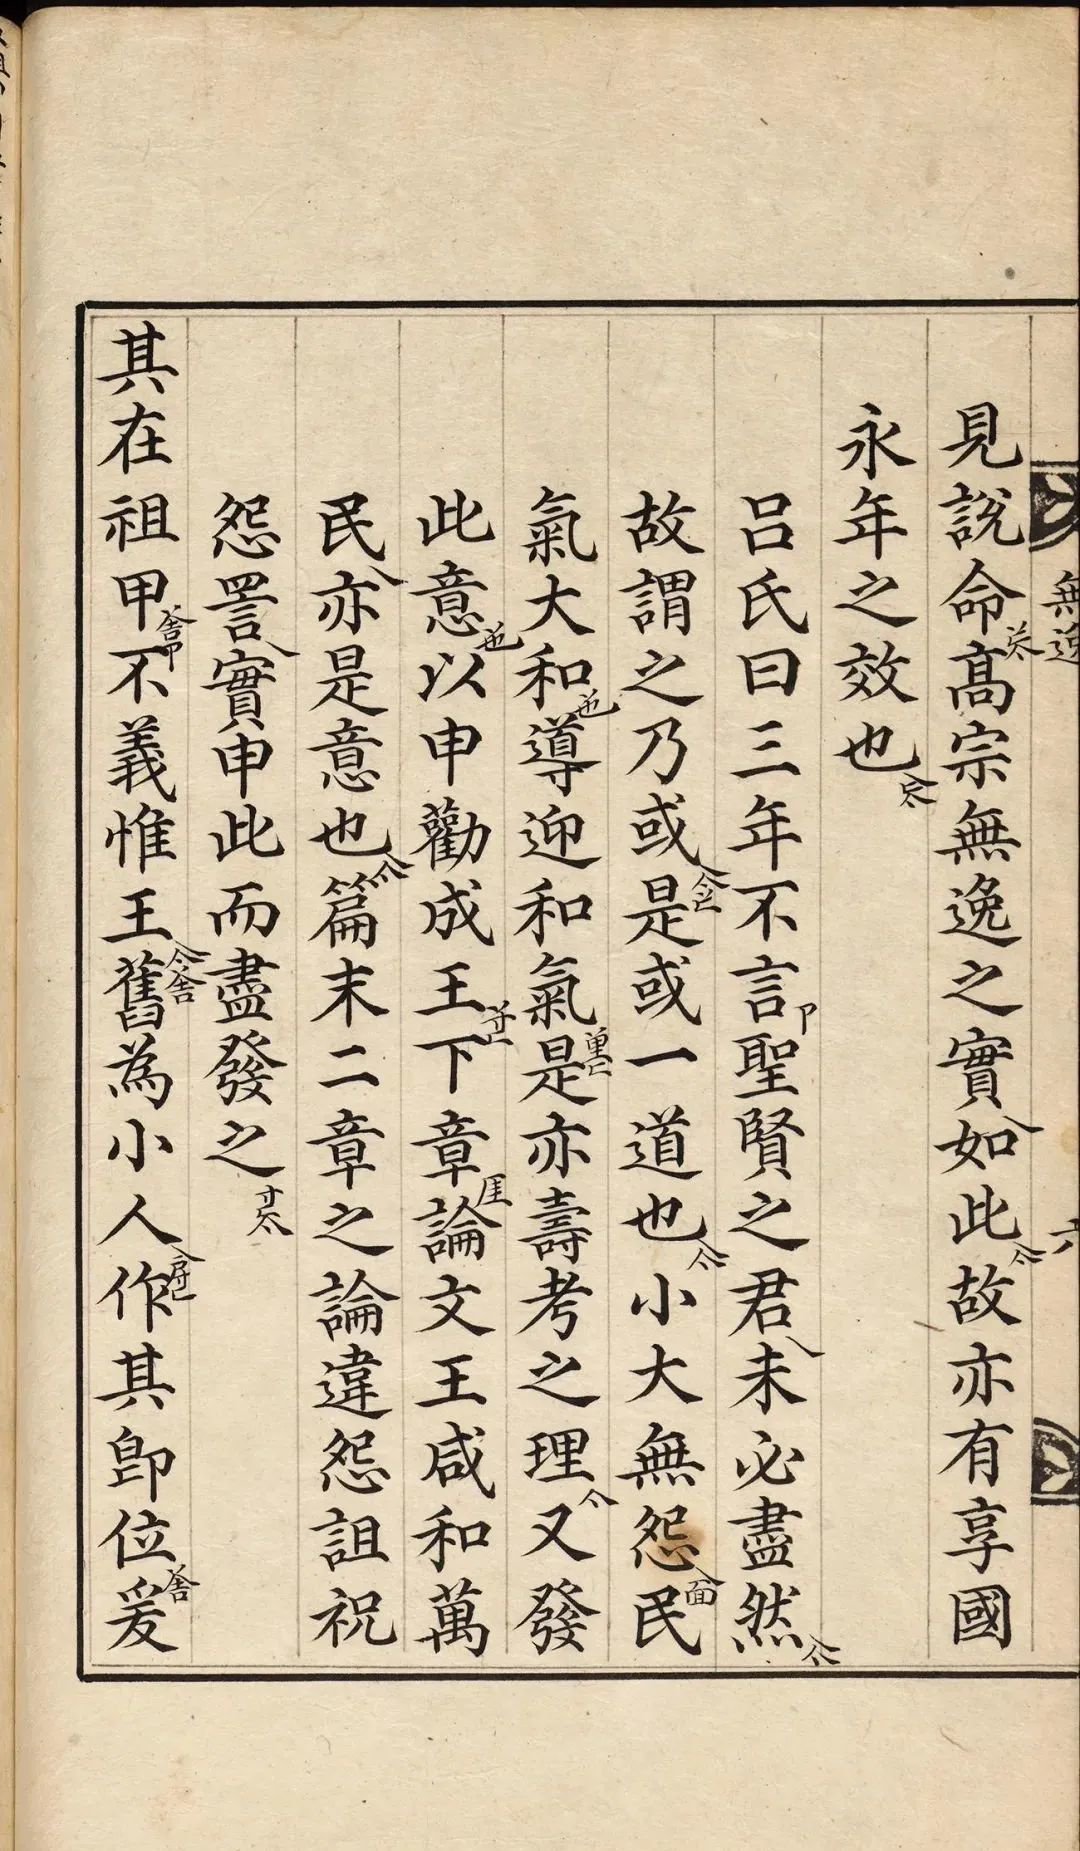 無逸
六
見說命高宗無逸之實如此故亦有享國
永年之效也
呂氏曰三年不言聖賢之君未必盡然
故謂之乃或是或一道也小大無怨民
氣大和導迎和氣是亦壽考之理又發
此意以申勸成王下章論文王咸和萬
民亦是意也篇末二章之論違怨詛祝
怨詈實申此而盡發之
其在祖甲不義惟王舊為小人作其即位爰